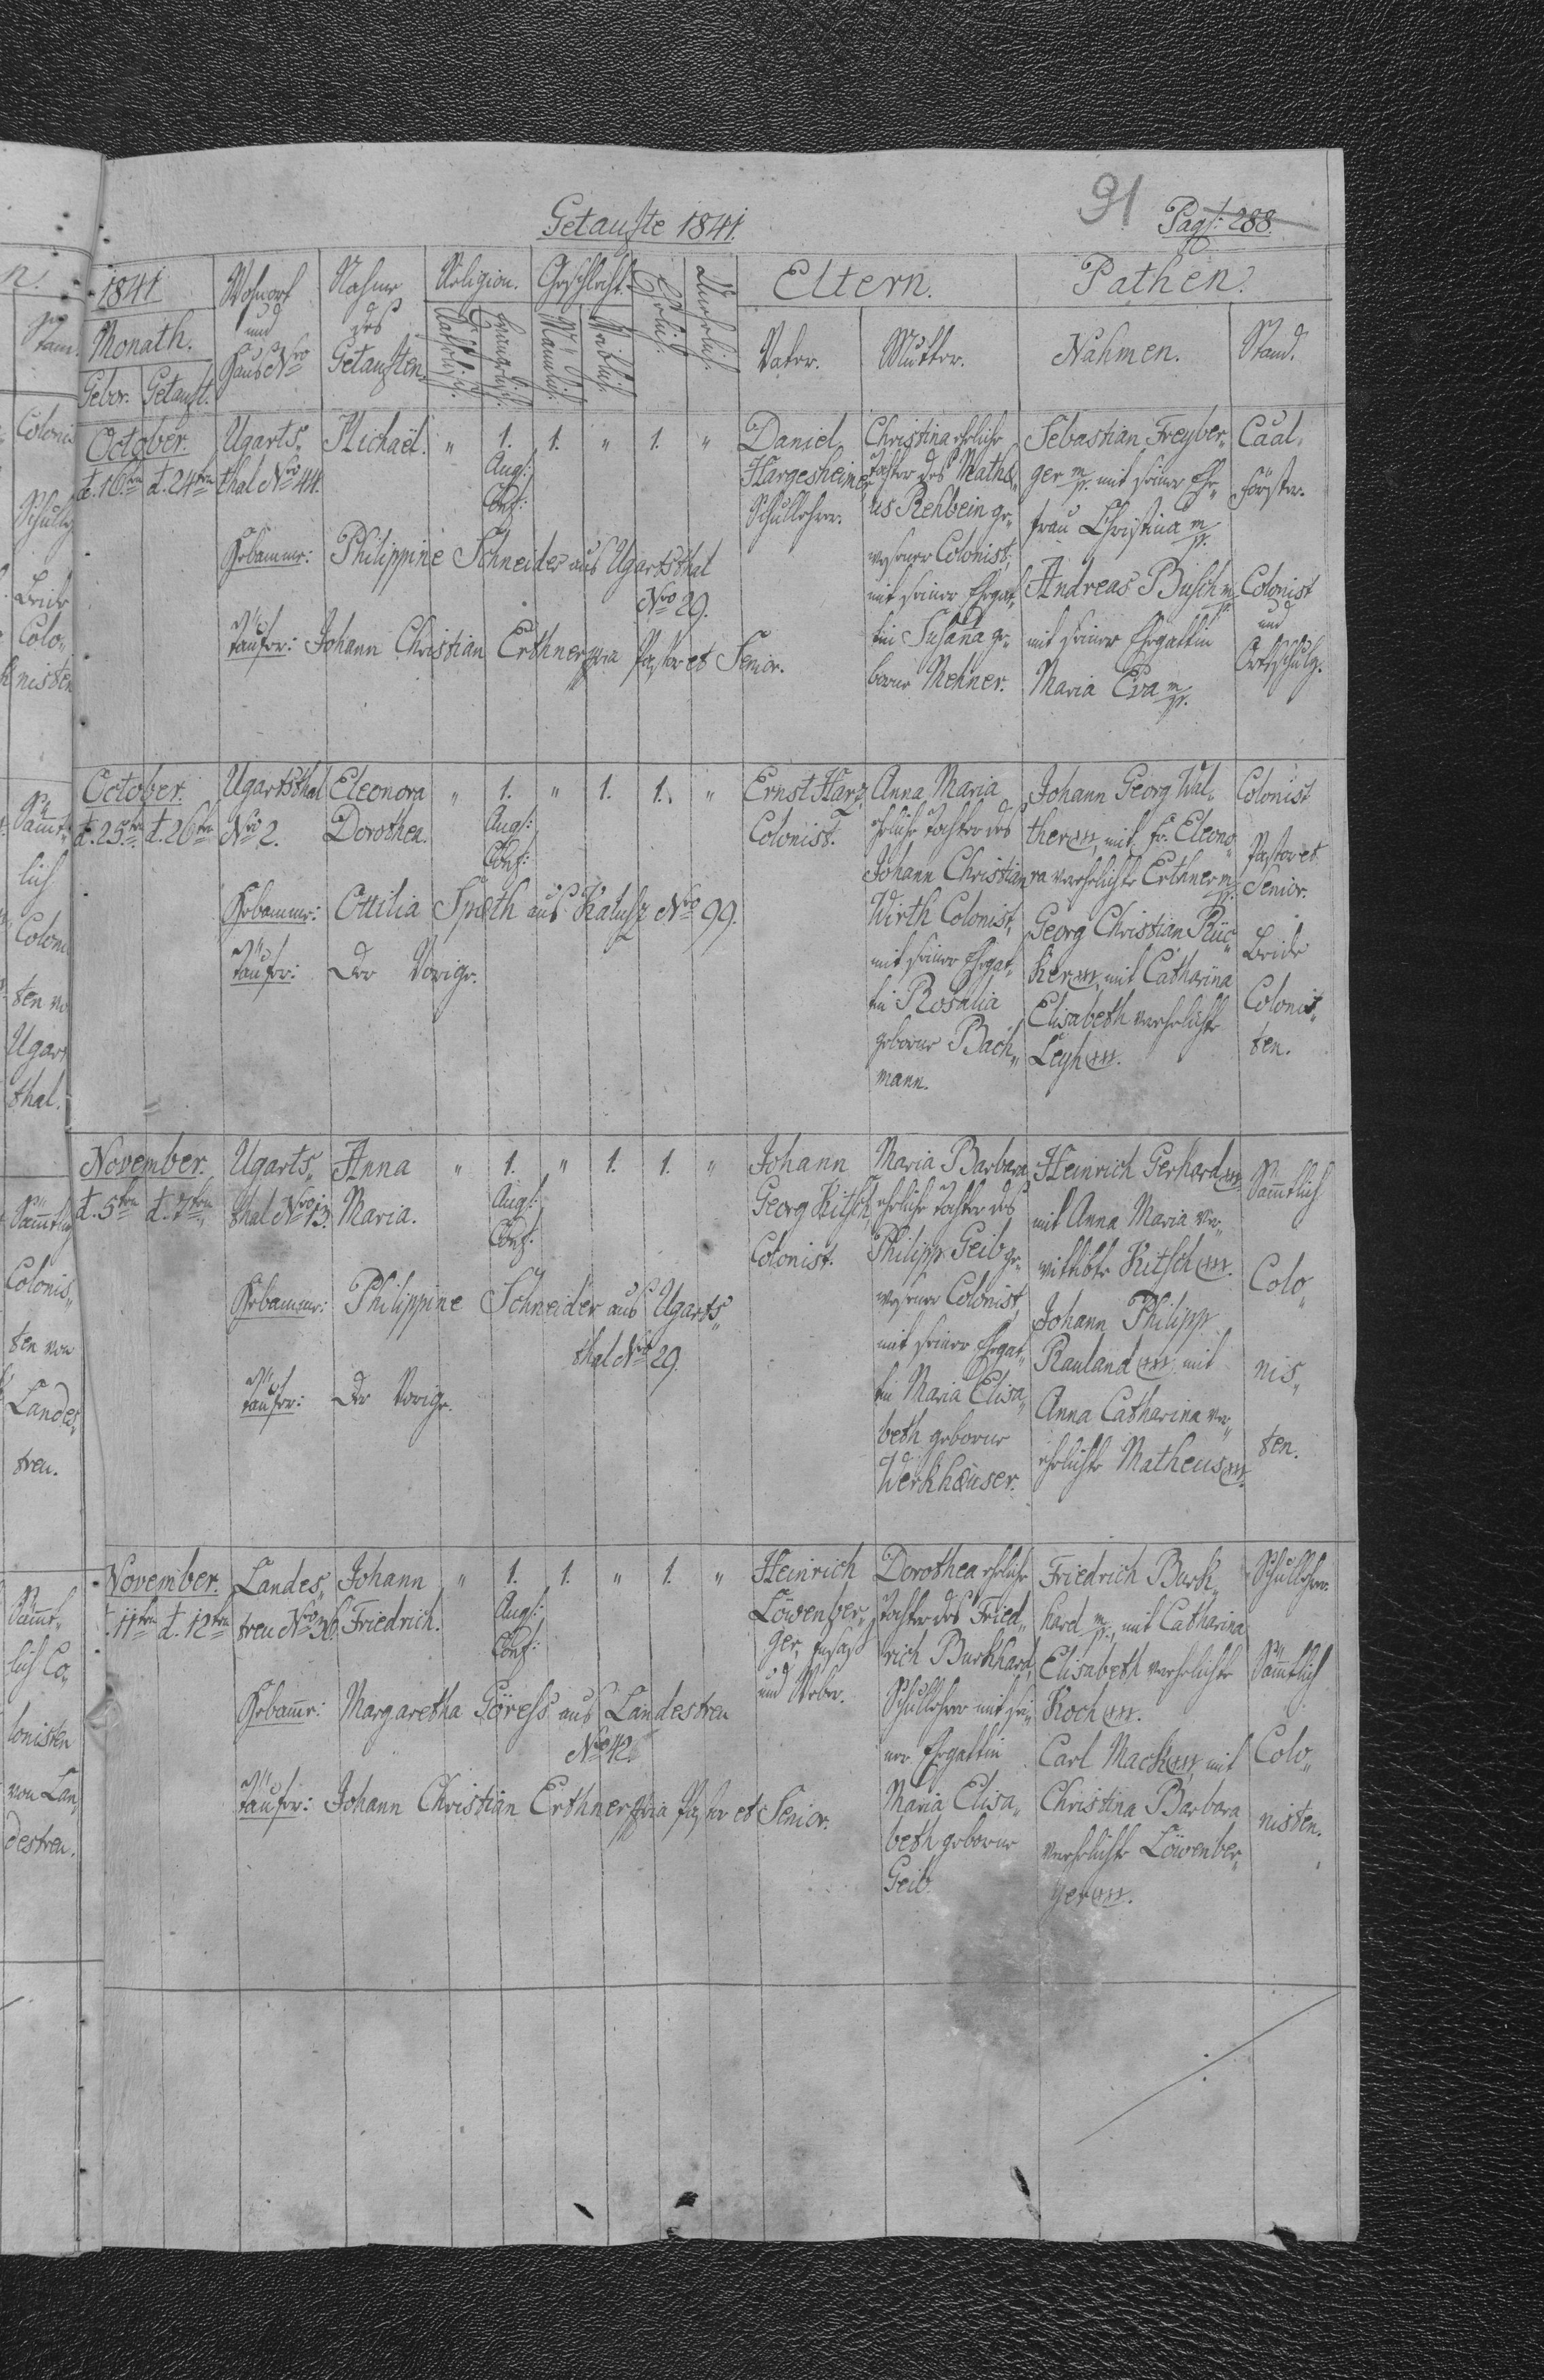 Getaufte 1841.
91
Pag: 288.
1841
Monath.
Gebor. Getauft.
Wohnort
und
Haus Nro
Nahme
des
Getauften.
Religion.
Katholisch.
Evangelisch.
Geschlecht.
Männlich.
Weiblich.
Ehelich.
Unehelich.
Eltern.
Vater.
Mutter.
Pathen.
Nahmen.
Stand.
October.
d. 16ten d. 24ten
Ugarts„
thal Nro 44.
Michaël.
„ 1. 1. „ 1. „
Augs:
Conf:
Daniel
Hargesheimer
Schullehrer.
Christina eheliche
Tochter des Mathä„
us Rehbein ge„
wesener Colonist,
mit seiner Ehegat„
tin Susana ge„
borne Mehner.
Sebastian Freyber„
ger mp. mit seiner Ehe„
frau Christina mp.
Andreas Busch mp.
mit seiner Ehegattin
Maria Eva mp.
Caal„
Förster.
Colonist
und
Ortsschulz.
Hebamme: Philippine Schneider aus Ugartsthal
Nro 29.
Täufer: Johann Christian Erthner mpria Pastor et Senior.
October.
d. 25ten d. 26ten
Ugartsthal
Nro 2.
Eleonora
Dorothea.
„ 1. „ 1. 1. „
Augs:
Conf:
Ernst Harz
Colonist.
Anna Maria
eheliche Tochter des
Johann Christian
Wirth Colonist,
mit seiner Ehegat„
tin Rosalia
geborne Bach„
mann.
Johann Georg Wal„
ther mit fr. Eleono„
ra verehelichte Erthner mp.
Georg Christian Rüc„
ker mit Catharina
Elisabeth verehelichte
Leyh
Colonist
Pastor et
Senior.
Beide
Colonis„
ten.
Hebamme: Ottilia Späth aus Kalusz Nro 99.
Täufer: Der Vorige.
November.
d. 5ten d. 7ten
Ugarts„
thal Nro 13.
Anna
Maria.
„ 1. „ 1. 1. „
Augs:
Conf:
Johann
Georg Kitsch
Colonist.
Maria Barbara
eheliche Tochter des
Philipp Geib ge„
wesener Colonist,
mit seiner Ehegat„
tin Maria Elisa„
beth geborne
Werkhäuser.
Heinrich Gerhard
mit Anna Maria ver„
wittibte Kitsch
Johann Philipp
Rauland mit
Anna Catharina ver„
ehelichte Matheus
Sämtlich
Colo„
nis„
ten.
Hebamme: Philippine Schneider aus Ugarts„
thal Nro 29.
Täufer: Der Vorige.
November.
d. 11ten d. 12ten
Landes„
treu Nro 36.
Johann
Friedrich.
„ 1. 1. „ 1. „
Augs:
Conf:
Heinrich
Löwenber„
ger, Insaß
und Weber.
Dorothea eheliche
Tochter des Fried„
rich Burkhard,
Schullehrer mit sei„
ner Ehegattin
Maria Elisa„
beth geborne
Geib.
Friedrich Burk„
hard mp., mit Catharina
Elisabeth verehelichte
Koch
Carl Mack mit
Christina Barbara
verehelichte Löwenber„
ger
Schullehrer
Sämtlich
Colo„
nisten.
Hebame: Margaretha Göress aus Landestreu
Nro 42.
Täufer: Johann Christian Erthner mpria Pastor et Senior.